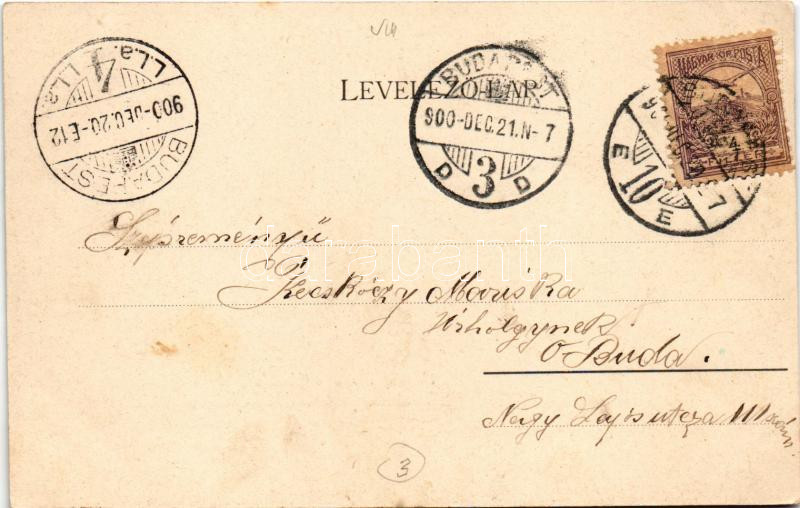 LEVELEZŐ-LAP.
MAGYAR KIR. POSTA
BUDAPEST
4
I.I.a. I.I.a.
900-DEC.20.-E.12
BUDAPEST
900-DEC.21.N-7
D 3 D
E 10 E
7
Szépreményű
Kecskóczy Mariska
Úrhölgynek
O Buda.
Nagy Lajos utcza 111 szám
3
darabanth